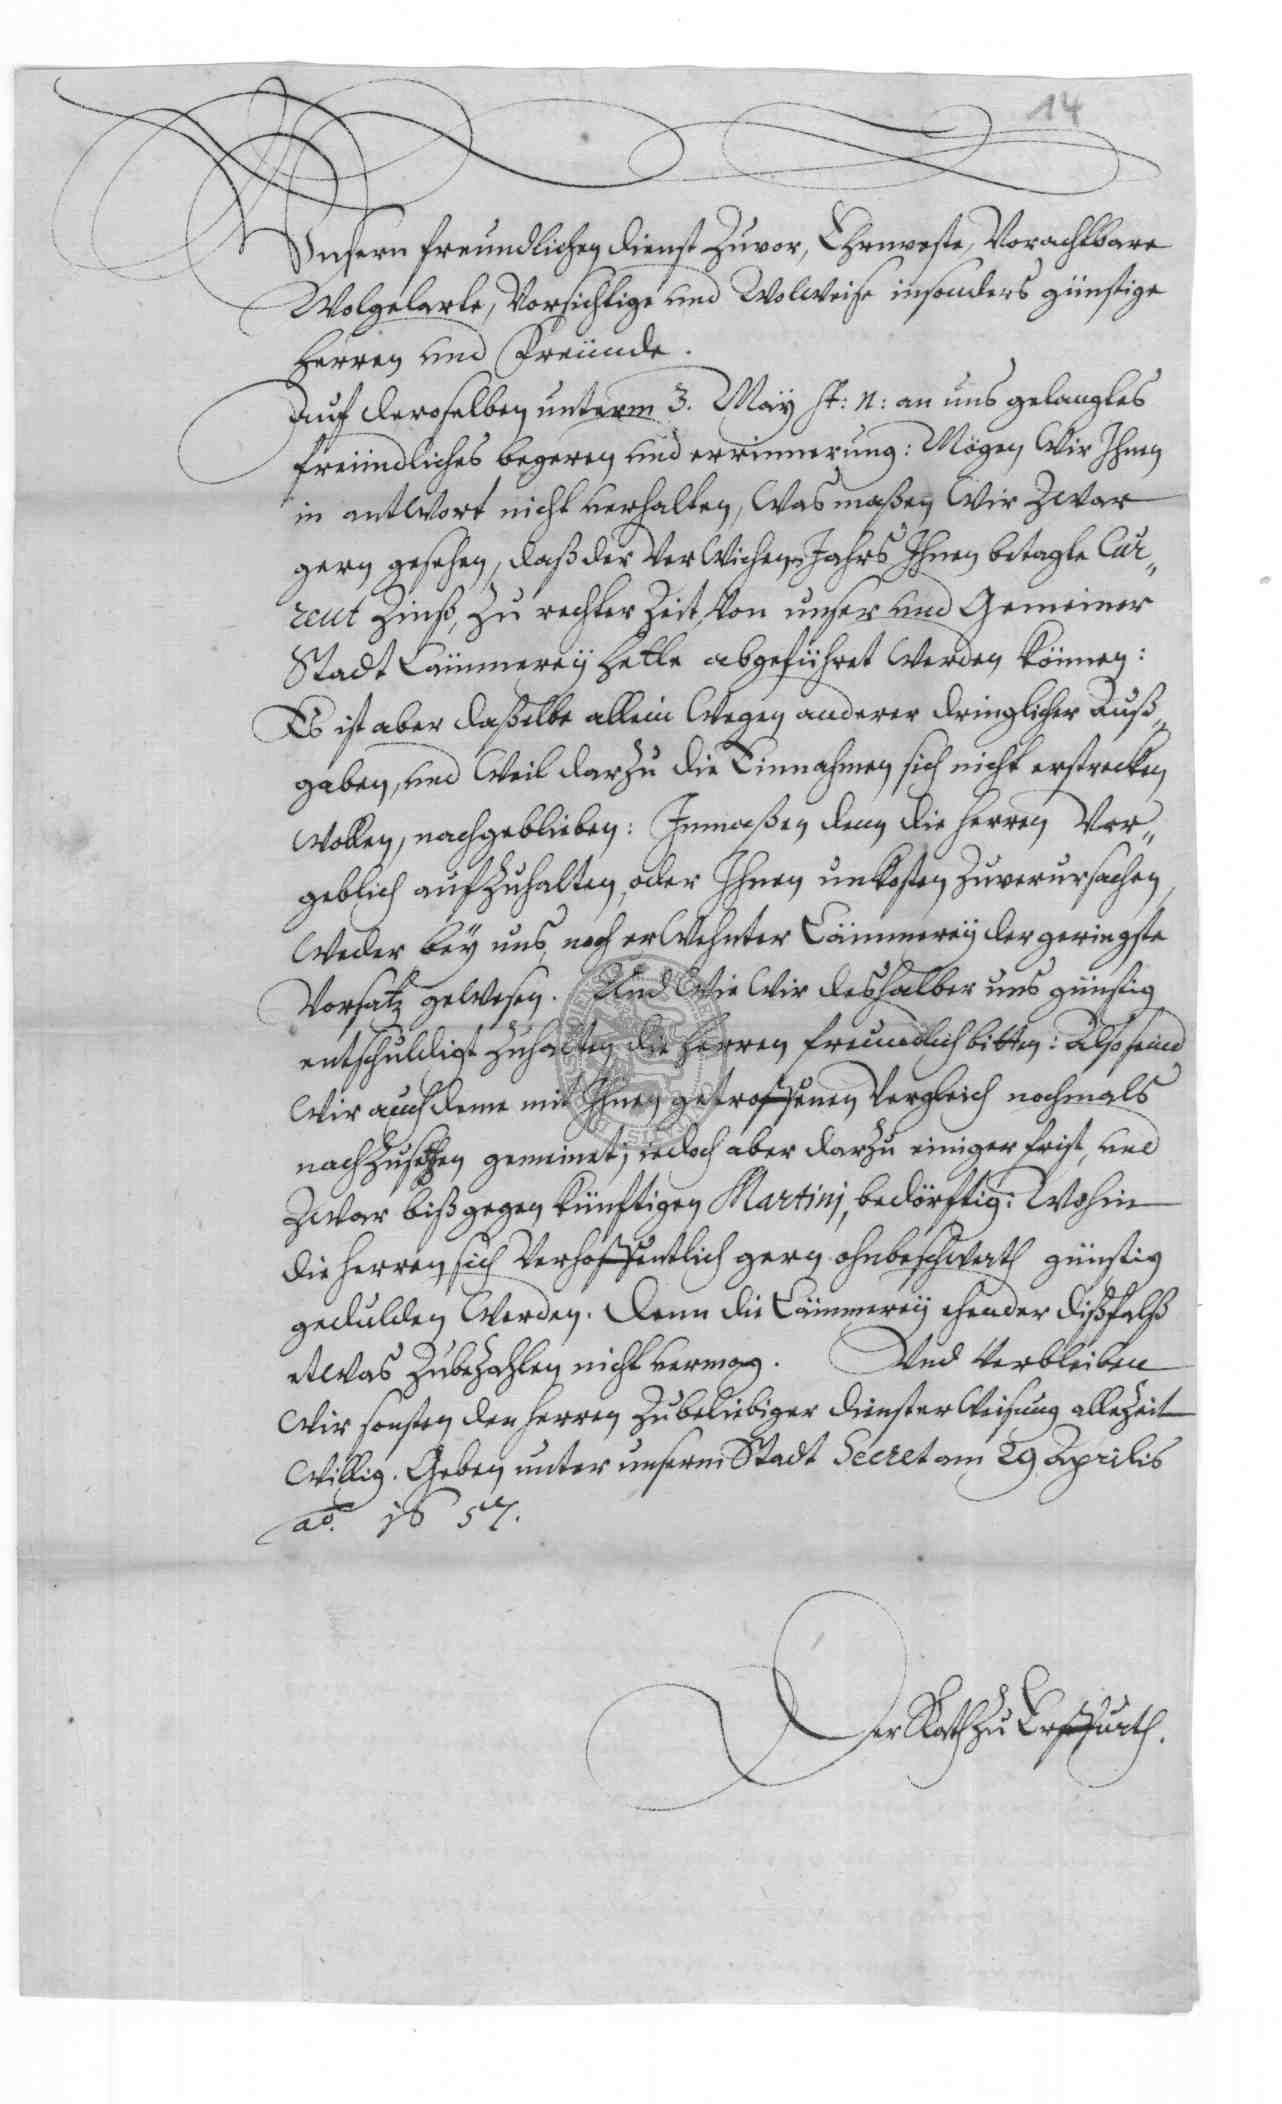 14
Vnsern freundlichen dienst zuvor, Ehrnveste, Vorachtbare
Wolgelarte, Vorsichtige und Wolweise insonders günstige
Herren und Freünde.
Auf deroselben unterm 3. Maÿ st: n: an uns gelangtes
freündliches begeren und errinnerung: Mögen Wir Ihnen
in antwort nicht verhalten, Was maßen Wir zwar
gern gesehen, daß der Verwichen Jahrs Ihnen betagte Cur„
rent Zinß, zu rechter Zeit, Von unser und Gemeiner
Stadt Cämmereÿ hette abgeführet werden können:
Es ist aber daßelbe allein Wegen anderer dringlicher Auß„
gaben, und Weil darzu die Einnahmen sich nicht erstrecken
Wollen, nachgeblieben: Inmaßen denn die Herren Ver„
geblich aufzuhalten, oder Ihnen unkosten zuverursachen,
Weder beÿ uns, noch erwehnter Cämmereÿ der geringste
Vorsatz gewesen. Und Wie Wir deshalber uns günstig
entschuldigt zuhalten, die Herren freundlich bitten: Also seind
Wir auch deme mit Ihnen getroffenen Vergleich nochmals
nachzusetzen gemeinet; iedoch aber darzu einiger frist, und
Zwar biß gegen künftigen Martinj, bedörftig: Wohin
die Herren sich Verhoffentlich gern ohnbeschwerth günstig
gedulden Werden. Denn die Cämmereÿ ehender dißfalß
etwas zubezahlen nicht vermag. Und Verbleiben
Wir sonsten den Herren zu beliebiger dienster Weisung allezeit
Willig. Geben unter unserm Stadt Secret am 29 Aprilis
ao. 1657.
Der Rath zu Erffurth.